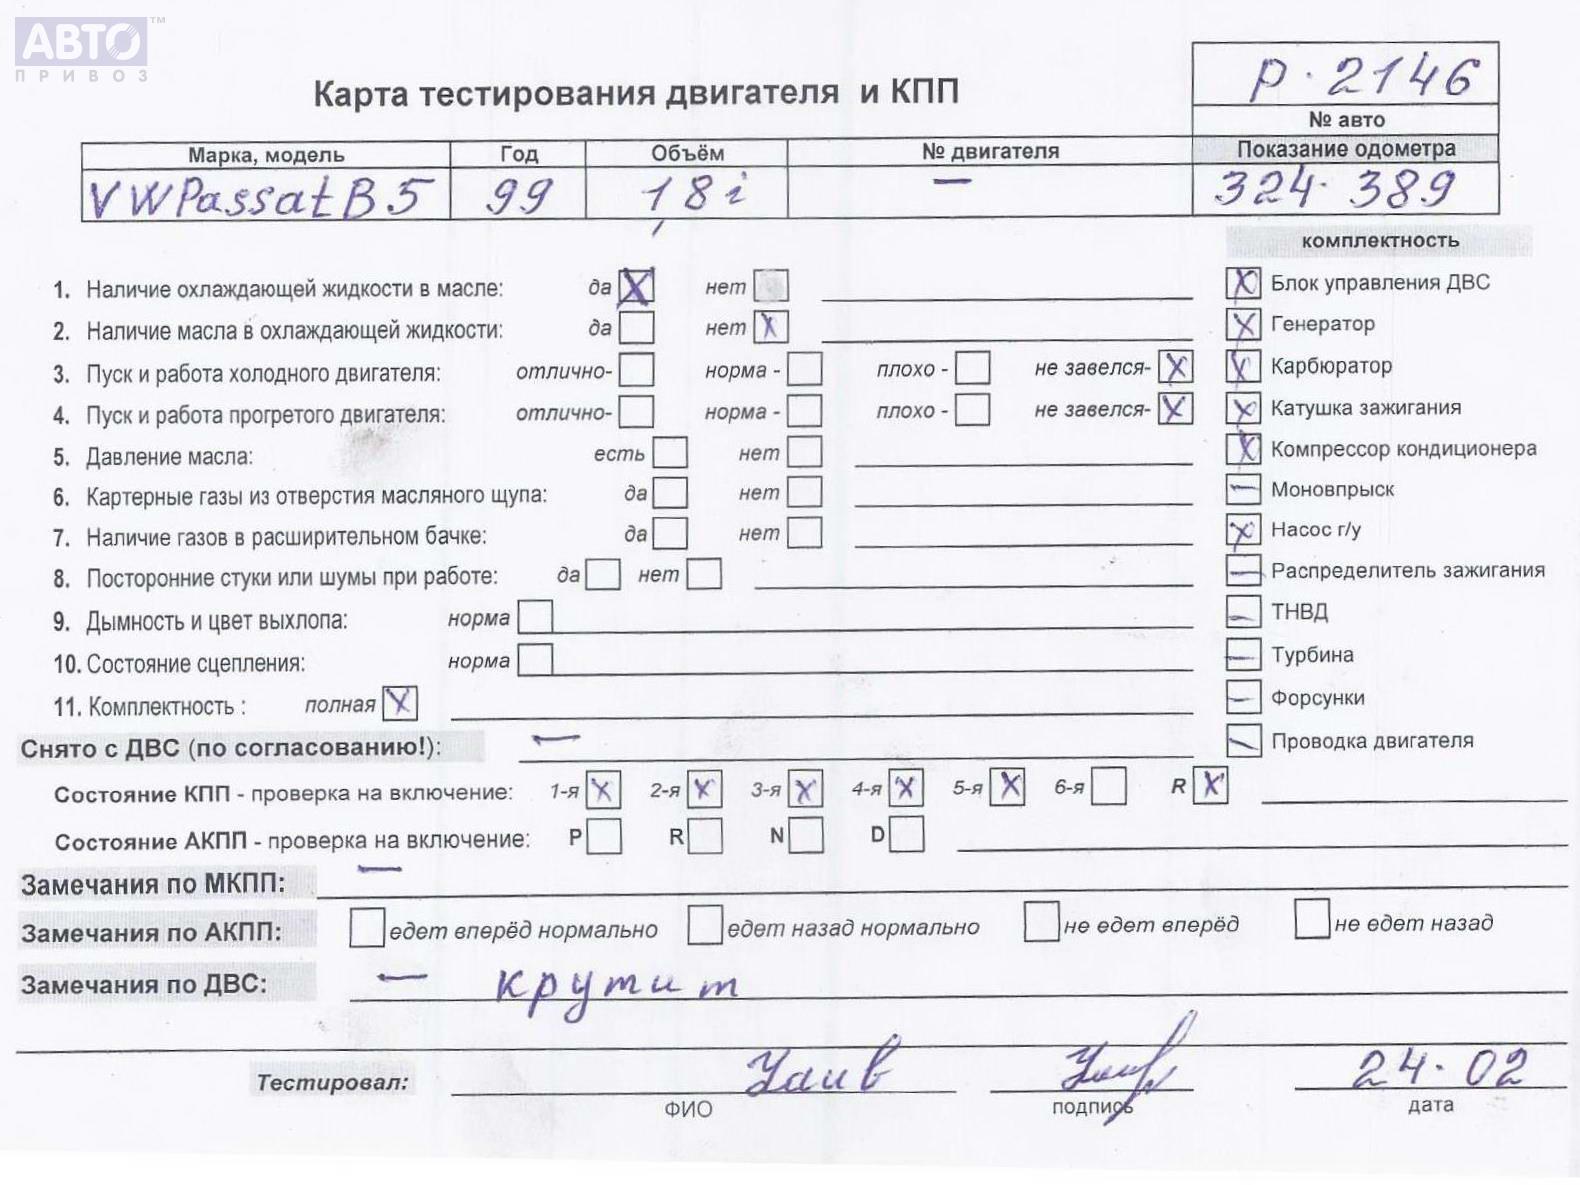 АВТО™
ПРИВОЗ
Карта тестирования двигателя и КПП
Р·2146
№ авто
Марка, модель Год Объём № двигателя Показание одометра
VW Passat B5 99 1,8i — 324·389
комплектность
1. Наличие охлаждающей жидкости в масле: да X нет Блок управления ДВС X
2. Наличие масла в охлаждающей жидкости: да нет X Генератор X
3. Пуск и работа холодного двигателя: отлично- норма - плохо - не завелся- X Карбюратор X
4. Пуск и работа прогретого двигателя: отлично- норма - плохо - не завелся- X Катушка зажигания X
5. Давление масла: есть нет Компрессор кондиционера X
6. Картерные газы из отверстия масляного щупа: да нет Моновпрыск —
7. Наличие газов в расширительном бачке: да нет Насос г/у X
8. Посторонние стуки или шумы при работе: да нет Распределитель зажигания —
9. Дымность и цвет выхлопа: норма ТНВД —
10. Состояние сцепления: норма Турбина —
11. Комплектность : полная X Форсунки —
Снято с ДВС (по согласованию!): — Проводка двигателя —
Состояние КПП - проверка на включение: 1-я X 2-я X 3-я X 4-я X 5-я X 6-я R X
Состояние АКПП - проверка на включение: P R N D
Замечания по МКПП: —
Замечания по АКПП: едет вперёд нормально едет назад нормально не едет вперёд не едет назад
Замечания по ДВС: — крутит
Тестировал: 24·02
ФИО подпись дата